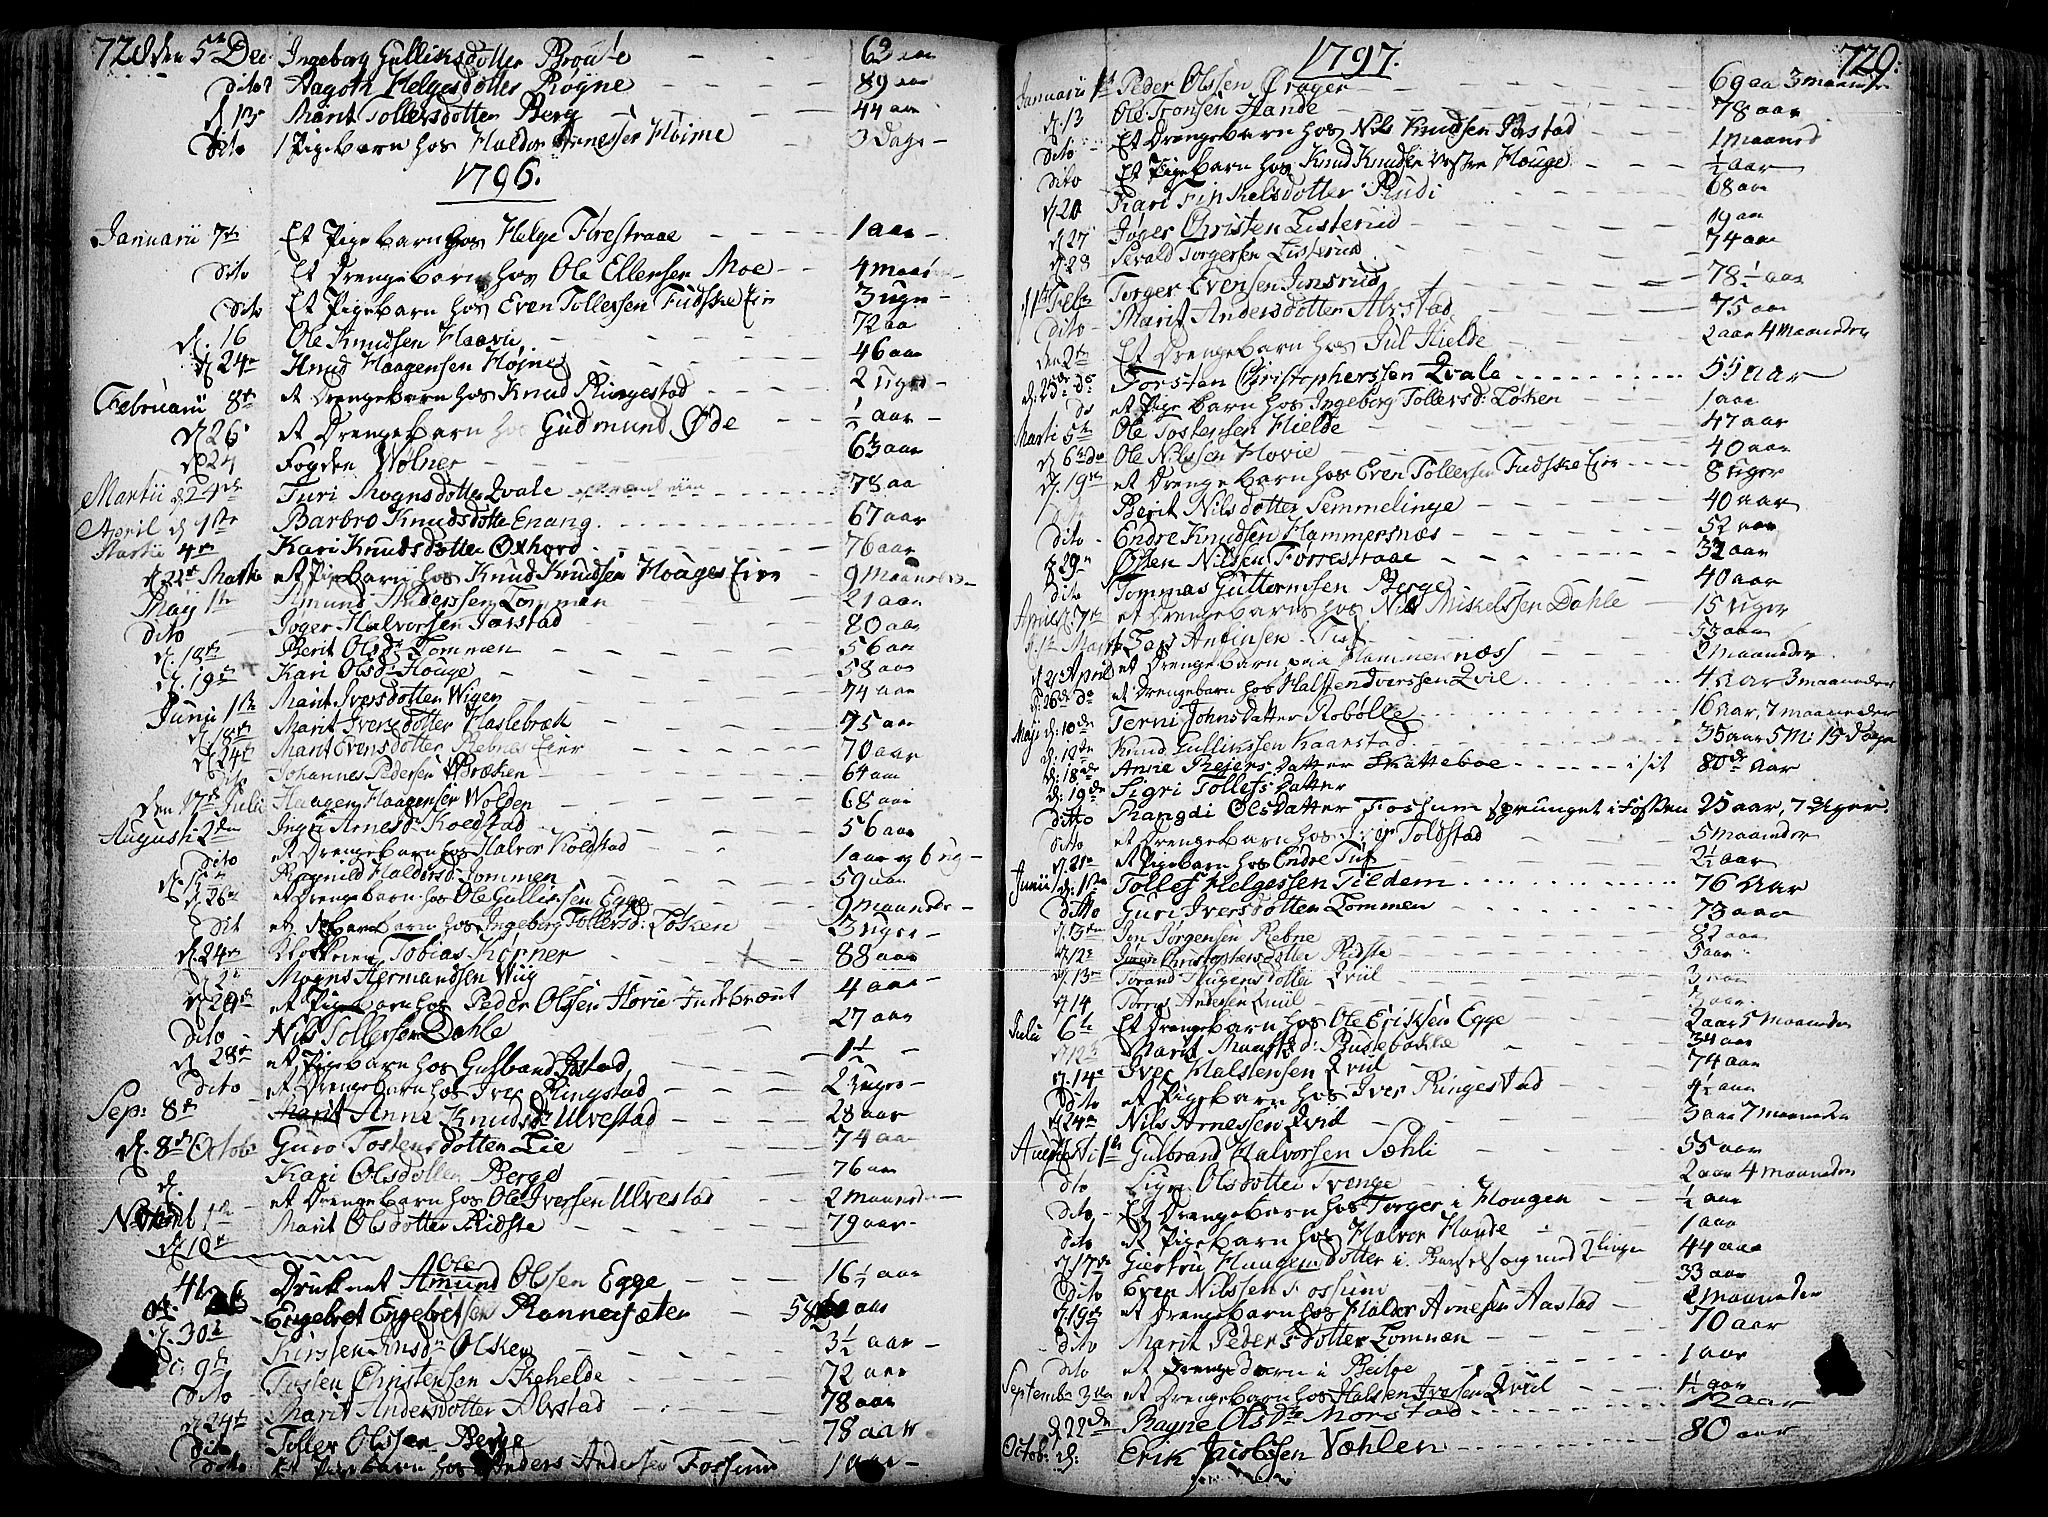 728 den 5te Dec. Ingeborg Gulliksdotter Broúte 62 aar
dito Aagoth Helgesdotter Røgne 89 aar
d 13 Marit Tollersdotter Berg 44 aar
dito 1 Pigebarn hos Haldor Arnesen Høime 3 Dage
1796.
Januarii 7de Et Pigebarn hos Helge Førestraae 1 aar
dito Et Drengebarn hos Ole Ellensen Moe 4 maan
dito Et Pigebarn hos Even Tollessen Fúdske Eier 3 uge
d. 16 Ole Knudsen Haavi 72 aar
d 24 Knud Haagensen Højne 46 aar
Februarii 8de et Drengebarn hos Knud Ringestad 2 uger
d 26 et Drengebarn hos Gúdmund Øde ½ aar
d 24 Fogden Wølner 63 aar
Martii d 24de Turi Mognsdotter Qvale 78 aar
April d 1ste Barbro Knudsdotter Enang 67 aar
Martii 4de Kari Knudsdotter Oxhord 76 aar
d 22 Martii et Pigebarn hos Knud Knudsen Houges Eier 9 maaneder
Maij 1ste Amund Anderssen Lommen 21 aar
dito Joger Halvorsen Jarstad 80 aar
d. 18de Berit Olsd. Lommen 56 aar
d. 19de Kari Olsd. Houge 58 aar
Marit Iversdotter Wigen 44 aar
Junii 1ste Marit Iversdotter Haslebræk 75 aar
d 24de Marit Evensdotter Rebnes Eier 70 aar
dito Johannes Pedersen Bræken 64 aar
den 17de Julii Haagen Haagensen Wolden 68 aar
Augusti 2den Ingri Arnesd. Koldstad 56 aar
dito et Drengebarn hos Halvor Koldstad 1 aar og 6 ug
Ragnild Haldorsd. Lommen 59 aar
d 26 et Drengebarn hos Ole Gullissen Egge 9 maaneder
dit et Barn hos Ingeborg Tollersd: Løken 3 uger
d. 24de Klokkeren Tobias Körner 88 aar
Mogns Hermandsen Wiig
d 20de et Pigebarn hos Peder Olssen Hovie 4 aar
dito Nils Tollersen Dahle 27 aar
d 28 et Pigebarn hos Gulbrand Jastad 1½
dito et Drengebarn hos Iver Ringstad 2 3 uger
Sep: 8de Anne Knudsd. Ulvestad 28 aar
d. 8de Octob. Guro Tostensdotter Lie 74 aar
d. Kari Olsdotter Berge 76 aar
Novemb 1ste et Drengebarn hos Ole Iversen Ulvestad 2 maaneder
d 10de Marit Olsdotter Ridste 79 aar
Druknet Ole Amund Olssen Egge 16½ aar
Engebret Engebretsen Rannesæter 58 aar
d. 30te Kirsten Olsken 3½ aar
d. 9de Tosten Christensen Skehelde 72 aar
dito Marit Andersdotter Alvstad 78 aar
d 24de Toller Olssen Berge 78 aar
dito Et Pigebarn hos Anders Andersen Fossum 1 aar
1797. 729.
Januarii 1ste Peder Olssen Qrager 69 aar 3 maaneder
d. 13 Ole Tronsen Hande 78 aar
dito Et Drengebarn hos Nils Knudsen Rastad 1 maaned
dito Et Pigebarn hos Knud Knudsen Vestre Houge ½ aar
d 20 Kari Finkelsdotter Rudi 68 aar
d 27 Joger Christen Listerud 19 aar
d 28 Sevald Torgersen Listerud 74 aar
1ste Feb Torger Evensen Jensrud 78½ aar
dito Marit Andersdotter Alvstad 75 aar
den 2de Et Drengebarn hos Jul Hielde 2 aar 4 maaneder
d. 25de do Torsten Christopherssen Qvale 55 aar
do et Pigebarn hos Ingeborg Tollersd: Løken 1 aar
Marti 5te Ole Tostensen Hielde 47 aar
d 6te do Ole Nilssen Hovie 40 aar
d. 19de et Drengebarn hos Even Tollersen Fudske Eier 8 uger
Berit Nilsdotter Semmelinge 40 aar
dito Endre Knudsen Hammersnæs 52 aar
d 29 Østen Nilssen Førrestraae 32 aar
dito Tommas Guttormsen Berge 40 aar
April 7de et Drengebarn hos Nils Mikelssen Dahle 15 uger
Lars Anfinsen Tuf 53 aar
d 21 April et Drengebarn paa Hammersnæss 2 maaneder
d: 26de do et Drengebarn hos Halsten Iverssen Qvil 4 aar 3 maaneder
Maji d: 10de Terni Johnsdatter Robølle 16 aar, 7 maaneder
d. 12te Knud Gullikssen Kaarstad 35 aar 5 M: 15 dage
d: 18de Anne Reiersdatter Skatteboe i sit 80de Aar
d: 19de Sigri Tollefsdatter
ditto Rangdi Olsdatter Fossum sprunget i Fossen 25 aar, 7 Uger
ditto et Drengebarn hos Toldstad 5 maaneder
d. 21 et Pigebarn hos Endre Tuf 2½ aar
Junii d: 1ste Tollef Helgessen Tildem 76 Aar
ditto Guri Iversdotter Lommen 73 aar
d. 3de Jon Jørgensen Rebne 82 aar
d. 12 Christophersdotter Ridste 5 aar
d. 13 Torand Mugensdotter Qviil 3 aar
d 14 Andersen Qviil
Julii 6te Et Drengebarn hos Ole Eriksen Egge 2 aar 5 maaneder
d 12 Marit 34 aar
d. 14 Iver Halstensen Qviil 74 aar
dito et Pigebarn hos Iver Ringestad 4½ aar
d 24 Nils Arnessen Qvil 3 aar 7 maaneder
Augusti 1ste Gulbrand Halvorsen Sæhli 55 aar
dito Olsdotter Svenge 2 aar 4 maaneder
dito Et Drengebarn hos Torger i Hougen ½ aar
dito et Pigebarn hos Halvor Hande 1 aar
d 17de Giertru Haagensdotter i Barselseng med 2linger 44 aar
dito Even Nilssen Fossum 33 aar
d. 19de et Drengebarn hos Haldor Arnesen Aastad 2 maaneder
dito Marit Pedersdotter Lommen 70 aar
dito et Drengebarn i Beitoe 1 aar
Septembr 3de et Drengebarn hos Halsten Iversen Qviil 1½ aar
d 22de Bagne Olsdtr Morstad 12 aar
Octob: d: Erik Jacobssen Væhlen 80 aar